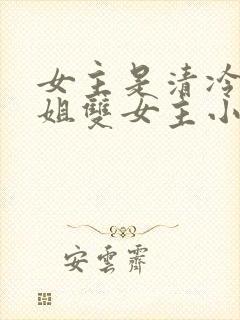 女主是清冷
姐雙女主小
安雲霽